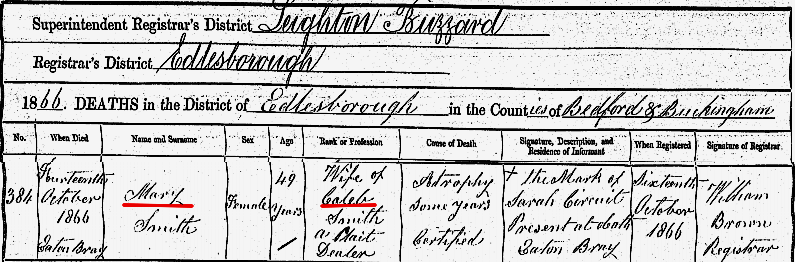 Superintendent Registrar's District Leighton Buzzard
Registrar's District Edlesborough
1866. DEATHS in the District of Edlesborough in the Counties of Bedford & Buckingham
No. When Died Name and Surname Sex Age Rank or Profession Cause of Death Signature, Description, and Residence of Informant When Registered Signature of Registrar
384
Fourteenth
October
1866
Eaton Bray
Mary
Smith
Female
49
years
Wife of
Caleb
Smith
a Plait
Dealer
Atrophy
Some years
Certified
+ the Mark of
Sarah Circuit
Present at death
Eaton Bray
Sixteenth
October
1866
William
Brown
Registrar